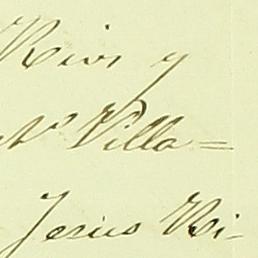 Rivs y
Villa=
Jesus Vi-